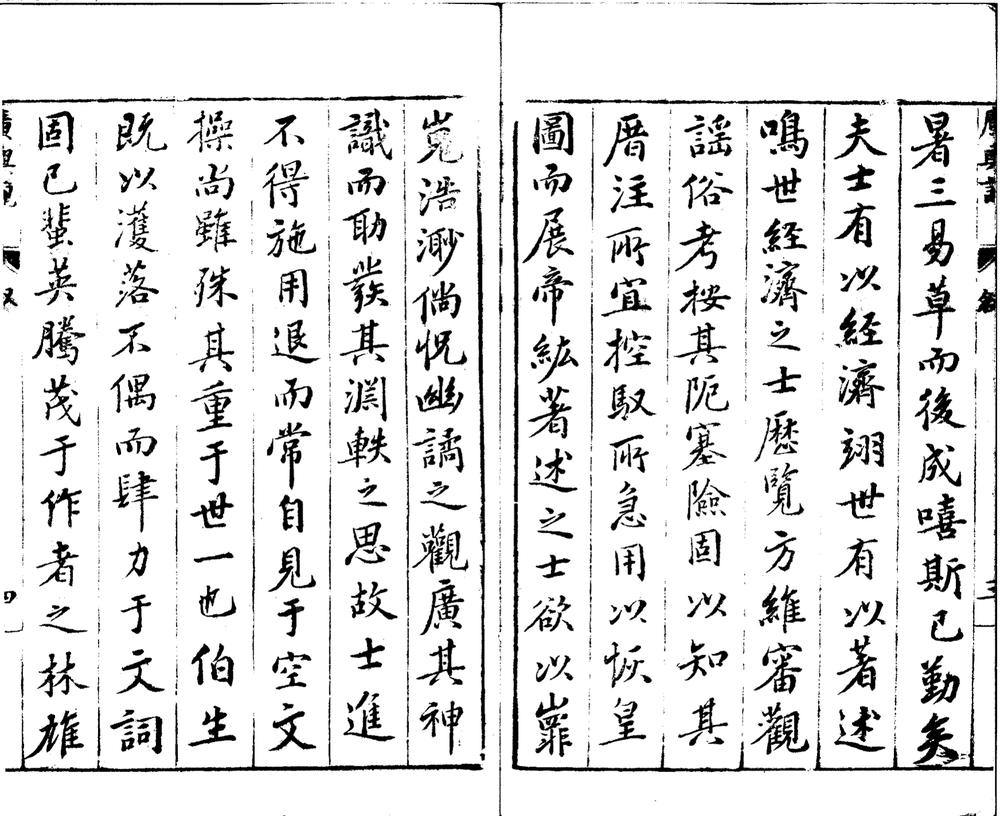 暑三易草而後成嘻斯已勤矣
夫士有以經濟翊世有以著述
鳴世經濟之士歷覽方維審觀
謡俗考桉其阨塞險固以知其
厝注所宜控馭所急用以恢皇
圖而展帝紘著述之士欲以嶵
嵬浩渺倘怳幽譎之觀廣其神
識而助發其淵軼之思故士進
不得施用退而常自見于空文
操尚雖殊其重于世一也伯生
既以濩落不偶而肆力于文詞
固已蜚英騰茂于作者之林雄